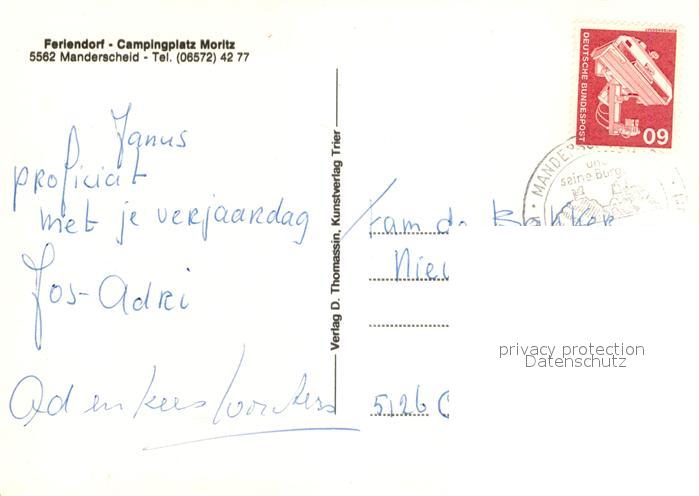 Feriendorf - Campingplatz Moritz
5562 Manderscheid - Tel. (06572) 42 77
Janus
proficiat
met je verjaardag
Jos-Adri
Ad en kees
Verlag D. Thomassin, Kunstverlag Trier
DEUTSCHE BUNDESPOST
60
MANDERS
und
seine Burg
Fam de Bakker
Nieu
5126
privacy protection
Datenschutz